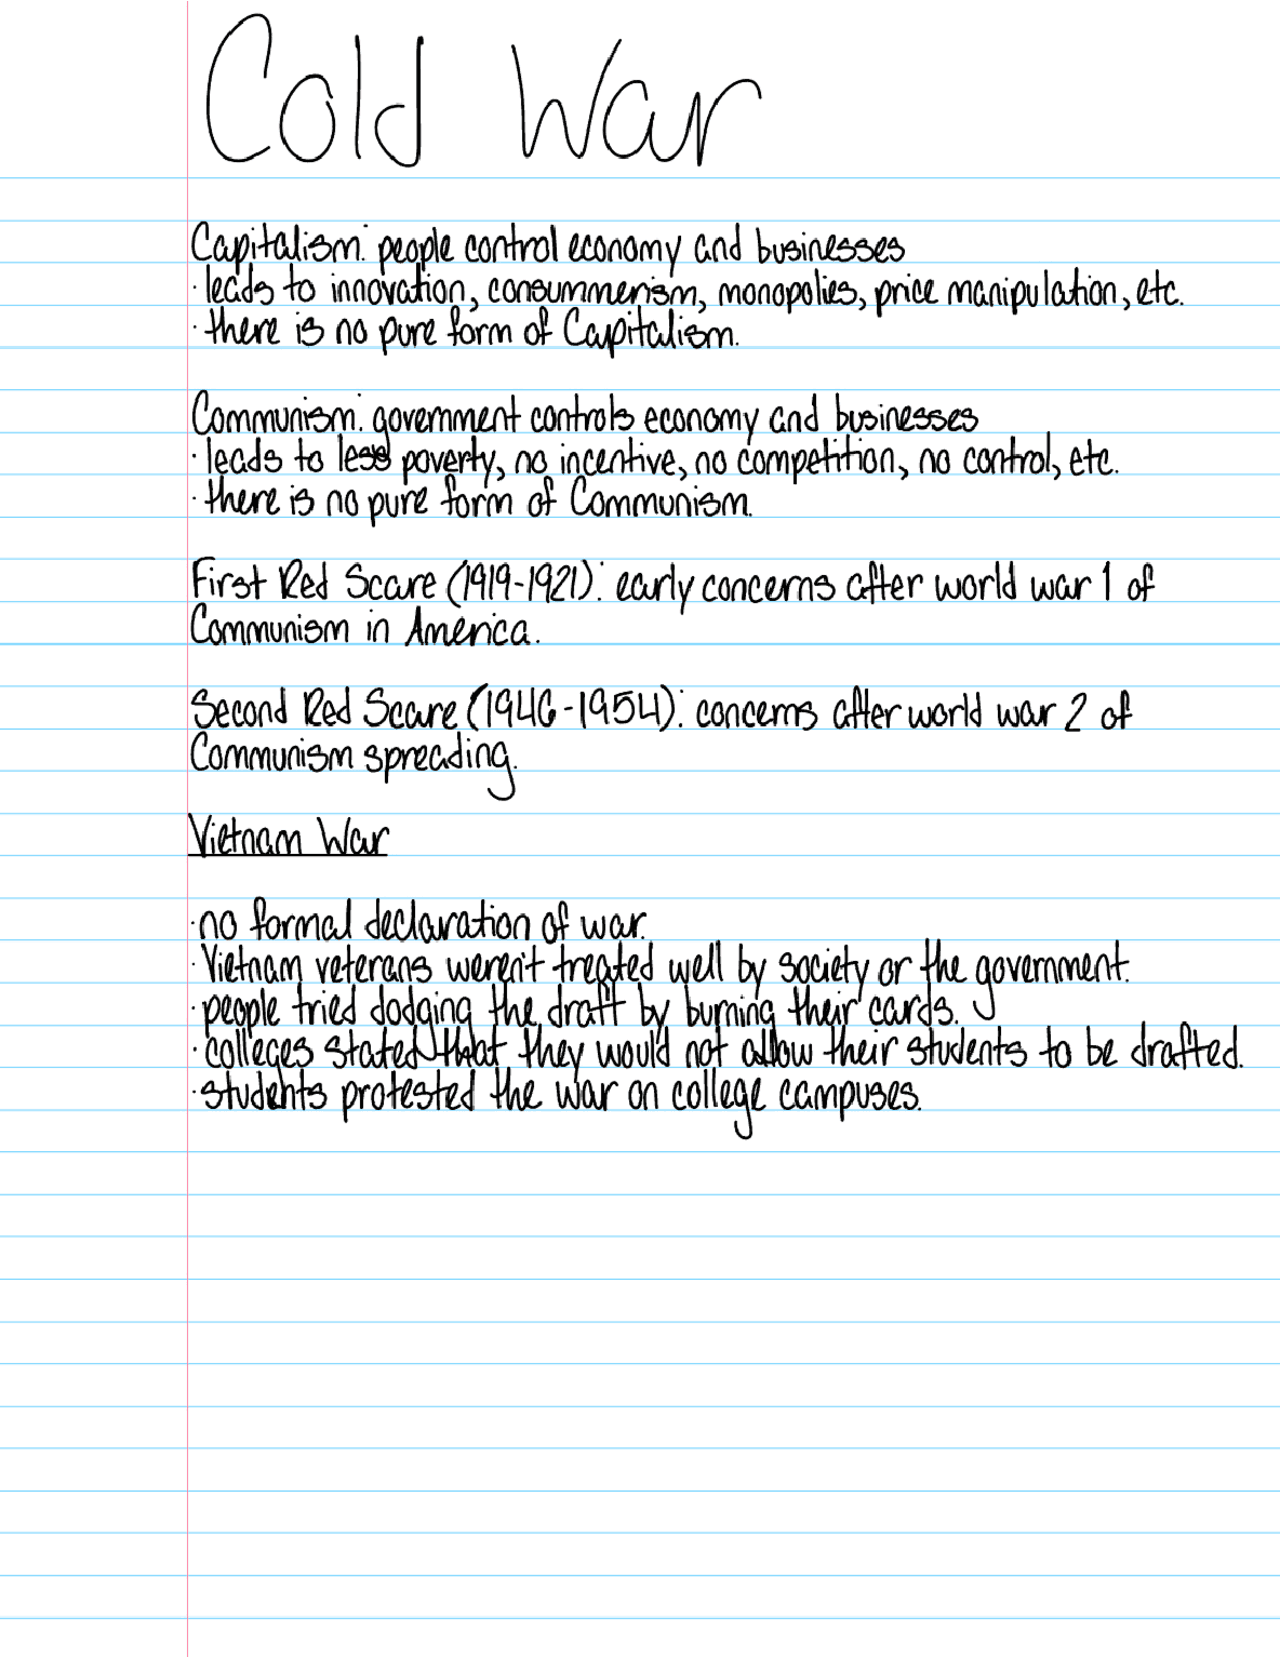 Cold War
Capitalism: people control economy and businesses
· leads to innovation, consummerism, monopolies, price manipulation, etc.
· there is no pure form of Capitalism.
Communism: government controls economy and businesses
· leads to less poverty, no incentive, no competition, no control, etc.
· there is no pure form of Communism.
First Red Scare (1919-1921): early concerns after world war 1 of
Communism in America.
Second Red Scare (1946-1954): concerns after world war 2 of
Communism spreading.
Vietnam War
· no formal declaration of war.
· Vietnam veterans weren't treated well by society or the government.
· people tried dodging the draft by burning their cards.
· colleges stated that they would not allow their students to be drafted.
· students protested the war on college campuses.